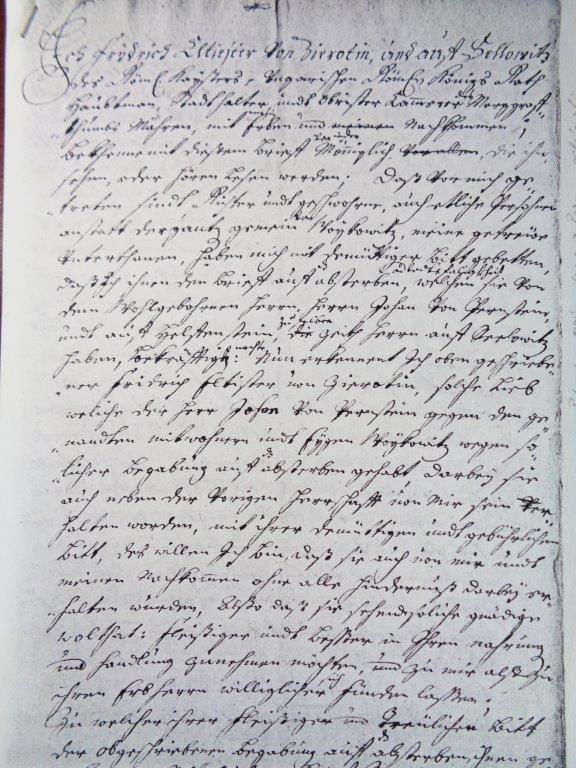 Ich Frydrich Elltister von Zierotin, und auff Sellowitz
des Röm: Kaysers, Ungarischen Böm: Königs Rath
Haubtman, Stadhalter undt Obrister Camerer des Marggraff-
thumbs Mähren, mit Erben und meinen Nachkommen,
bekhenne mit diesem Brieff vor jeden Mäniglich vor allen, die ihn
sehen, oder hören lesen werden: Daß vor mich ge
treten sindt Richter undt geschworne, auch etliche Persohnen
anstatt der gantz gemein von Woykowitz, meine getreüe
Unterthanen, haben mich mit demüttiger Bitt gebetten,
daß ich ihnen den Brieff auff absterben, welchen sie von
dem Wohlgebohrnen Herrn, Herrn Johan von Pernstein,
undt auff Helffenstein, die Zeit Herrn auff Seelowitz
haben, bekräfftigt: Nun erkennent Ich oben geschriebe-
ner Fridrich Eltister von Zierotin, solche Lieb
welche der Herr Johan von Pernstein gegen den ge
nandten mitwohnern undt Eygen Woykowitz wegen so-
licher begabung auff absterben gehabt, darbey sie
auch neben der vorigen Herrschafft von mir sein
halten worden, mit ihrer demüttigen undt gebührlichen
Bitt, des willen Ich bin, daß sie auch von mir undt
meinen Nachkomen ohne alle hindernuß darbey er-
halten würden, Also daß sie sehendt solche gnädige
wolthat: fleißiger undt besser in Ihren nahrung
und handlung zunehmen möchten, und zu mir alß zu
ihren Erbherrn williglicher sich finden lassen;
Zu welcher ihrer fleißiger und treülicher Bitt
der obgeschriebenen begabung auff absterben, ihnen ge